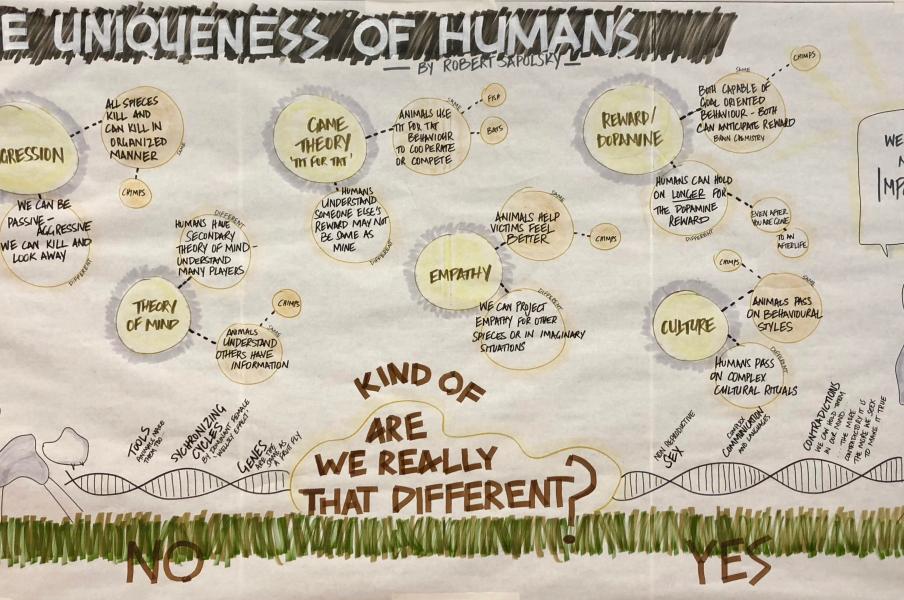 E UNIQUENESS OF HUMANS
— BY ROBERT SAPOLSKY —
GRESSION
ALL SPIECES
KILL AND
CAN KILL IN
ORGANIZED
MANNER
SAME
CHIMPS
WE CAN BE
PASSIVE-
AGGRESSIVE
WE CAN KILL AND
LOOK AWAY
DIFFERENT
GAME
THEORY
'TIT FOR TAT'
ANIMALS USE
TIT FOR TAT
BEHAVIOUR
TO COOPERATE
OR COMPETE
SAME
FISH
BATS
HUMANS
UNDERSTAND
SOMEONE ELSE'S
REWARD MAY NOT
BE SAME AS
MINE
DIFFERENT
REWARD/
DOPAMINE
SAME
BOTH CAPABLE OF
GOAL ORIENTED
BEHAVIOUR - BOTH
CAN ANTICIPATE REWARD
BRAIN CHEMISTRY
CHIMPS
HUMANS CAN HOLD
ON LONGER FOR
THE DOPAMINE
REWARD
DIFFERENT
EVEN AFTER
YOU'RE GONE
TO AN
AFTERLIFE
THEORY
OF MIND
DIFFERENT
HUMANS HAVE
SECONDARY
THEORY OF MIND-
UNDERSTAND
MANY PLAYERS
CHIMPS
SAME
ANIMALS
UNDERSTAND
OTHERS HAVE
INFORMATION
EMPATHY
SAME
ANIMALS HELP
VICTIMS FEEL
BETTER
CHIMPS
DIFFERENT
WE CAN PROJECT
EMPATHY FOR OTHER
SPIECES OR IN IMAGINARY
SITUATIONS
CULTURE
CHIMPS
SAME
ANIMALS PASS
ON BEHAVIOURAL
STYLES
DIFFERENT
HUMANS PASS
ON COMPLEX
CULTURAL RITUALS
WE
KIND OF
ARE
WE REALLY
THAT DIFFERENT?
TOOLS
ANIMALS HAVE
THEM TOO
SYCHRONIZING
CYCLES
BY DOMINANT FEMALE
'WELLESLEY EFFECT'
GENES
ARE THE
SAME AS
A FRUIT FLY
NON REPRODUCTIVE
SEX
COMPLEX
COMMUNICATION
AND LANGUAGES
CONTRADICTIONS
WE CAN HOLD THEM
IN OUR MINDS
THE MORE
CONTRADICTORY IT IS
THE MORE WE SEEK
TO MAKE IT TRUE
NO
YES